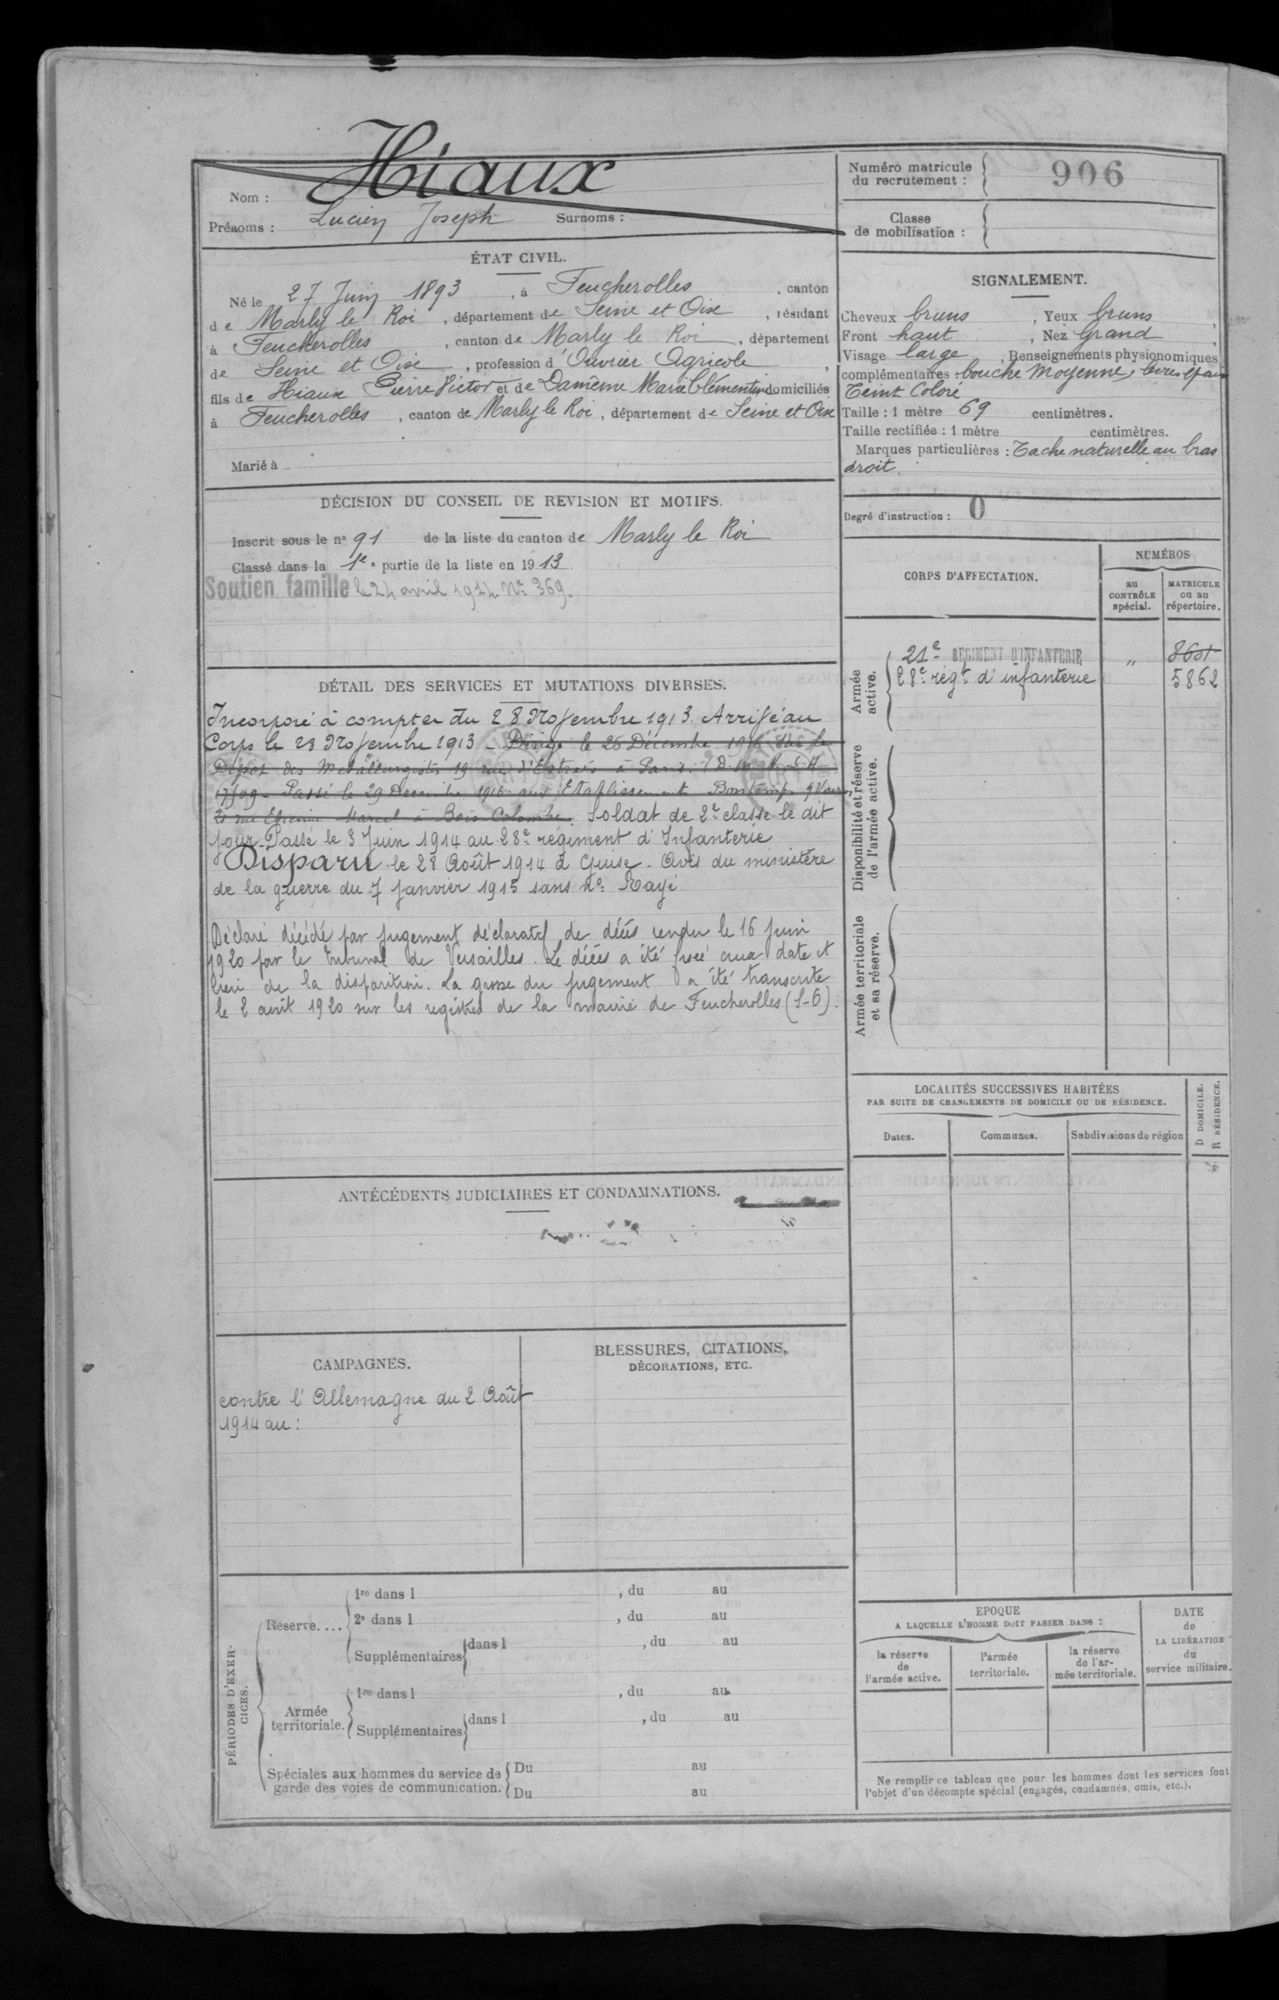 Nom : Hiaux
Prénoms : Lucien Joseph Surnoms :
Numéro matricule du recrutement : 906
Classe de mobilisation :
ÉTAT CIVIL.
Né le 27 Juin 1893, à Feucherolles, canton
de Marly le Roi, département de Seine et Oise, résidant
à Feucherolles, canton de Marly le Roi, département
de Seine et Oise, profession d'Ouvrier Agricole,
fils de Hiaux Pierre Victor et de Marie Clémentine domiciliés
à Feucherolles, canton de Marly le Roi, département de Seine et Oise
Marié à
SIGNALEMENT.
Cheveux bruns, Yeux bruns,
Front haut, Nez Grand,
Visage large, Renseignements physionomiques
complémentaires : bouche Moyenne, lèvres
Teint Coloré
Taille : 1 mètre 69 centimètres.
Taille rectifiée : 1 mètre centimètres.
Marques particulières : Tache naturelle au bras
droit.
Degré d'instruction : 0
DÉCISION DU CONSEIL DE REVISION ET MOTIFS.
Inscrit sous le n° 91 de la liste du canton de Marly le Roi
Classé dans la 1e partie de la liste en 1913.
Soutien famille le 24 avril 1914 N° 369.
DÉTAIL DES SERVICES ET MUTATIONS DIVERSES.
Incorporé à compter du 28 Novembre 1913. Arrivé au
Corps le 28 Novembre 1913 - Dirigé le 26 Décembre 1916 sur le
Dépôt des Métallurgistes 19 rue d'Estrées à Paris.
Passé le 29 Décembre 1916 aux Etablissements
rue Etienne Marcel à Bois Colombes. Soldat de 2e classe le dit
jour. Passé le 3 Juin 1914 au 28e régiment d'Infanterie
Disparu le 28 Août 1914 à Guise - Avis du ministère
de la guerre du 7 janvier 1915 sans No. Rayé
Déclaré décédé par jugement déclaratif de décès rendu le 16 juin
1920 par le tribunal de Versailles. Le décès a été fixé aux date et
lieu de la disparition. La grosse du jugement a été transcrite
le 2 août 1920 sur les registres de la mairie de Feucherolles (S-O).
CORPS D'AFFECTATION.
NUMÉROS
au CONTRÔLE spécial.
MATRICULE ou au répertoire.
Armée active.
21e REGIMENT D'INFANTERIE " 8601
28e régt d'infanterie 5862
Disponibilité et réserve de l'armée active.
Armée territoriale et sa réserve.
LOCALITÉS SUCCESSIVES HABITÉES
PAR SUITE DE CHANGEMENTS DE DOMICILE OU DE RÉSIDENCE.
Dates. Communes. Subdivisions de région
D DOMICILE.
R RÉSIDENCE.
ANTÉCÉDENTS JUDICIAIRES ET CONDAMNATIONS.
CAMPAGNES.
contre l'Allemagne du 2 Août
1914 au :
BLESSURES, CITATIONS,
DÉCORATIONS, ETC.
PÉRIODES D'EXERCICES.
Réserve....
1re dans l , du au
2e dans l , du au
Supplémentaires dans l , du au
Armée territoriale.
1re dans l , du au
Supplémentaires dans l , du au
Spéciales aux hommes du service de garde des voies de communication.
Du au
Du au
EPOQUE
A LAQUELLE L'HOMME DOIT PASSER DANS :
la réserve de l'armée active.
l'armée territoriale.
la réserve de l'armée territoriale.
DATE de LA LIBÉRATION du service militaire.
Ne remplir ce tableau que pour les hommes dont les services font
l'objet d'un décompte spécial (engagés, condamnés, omis, etc.).